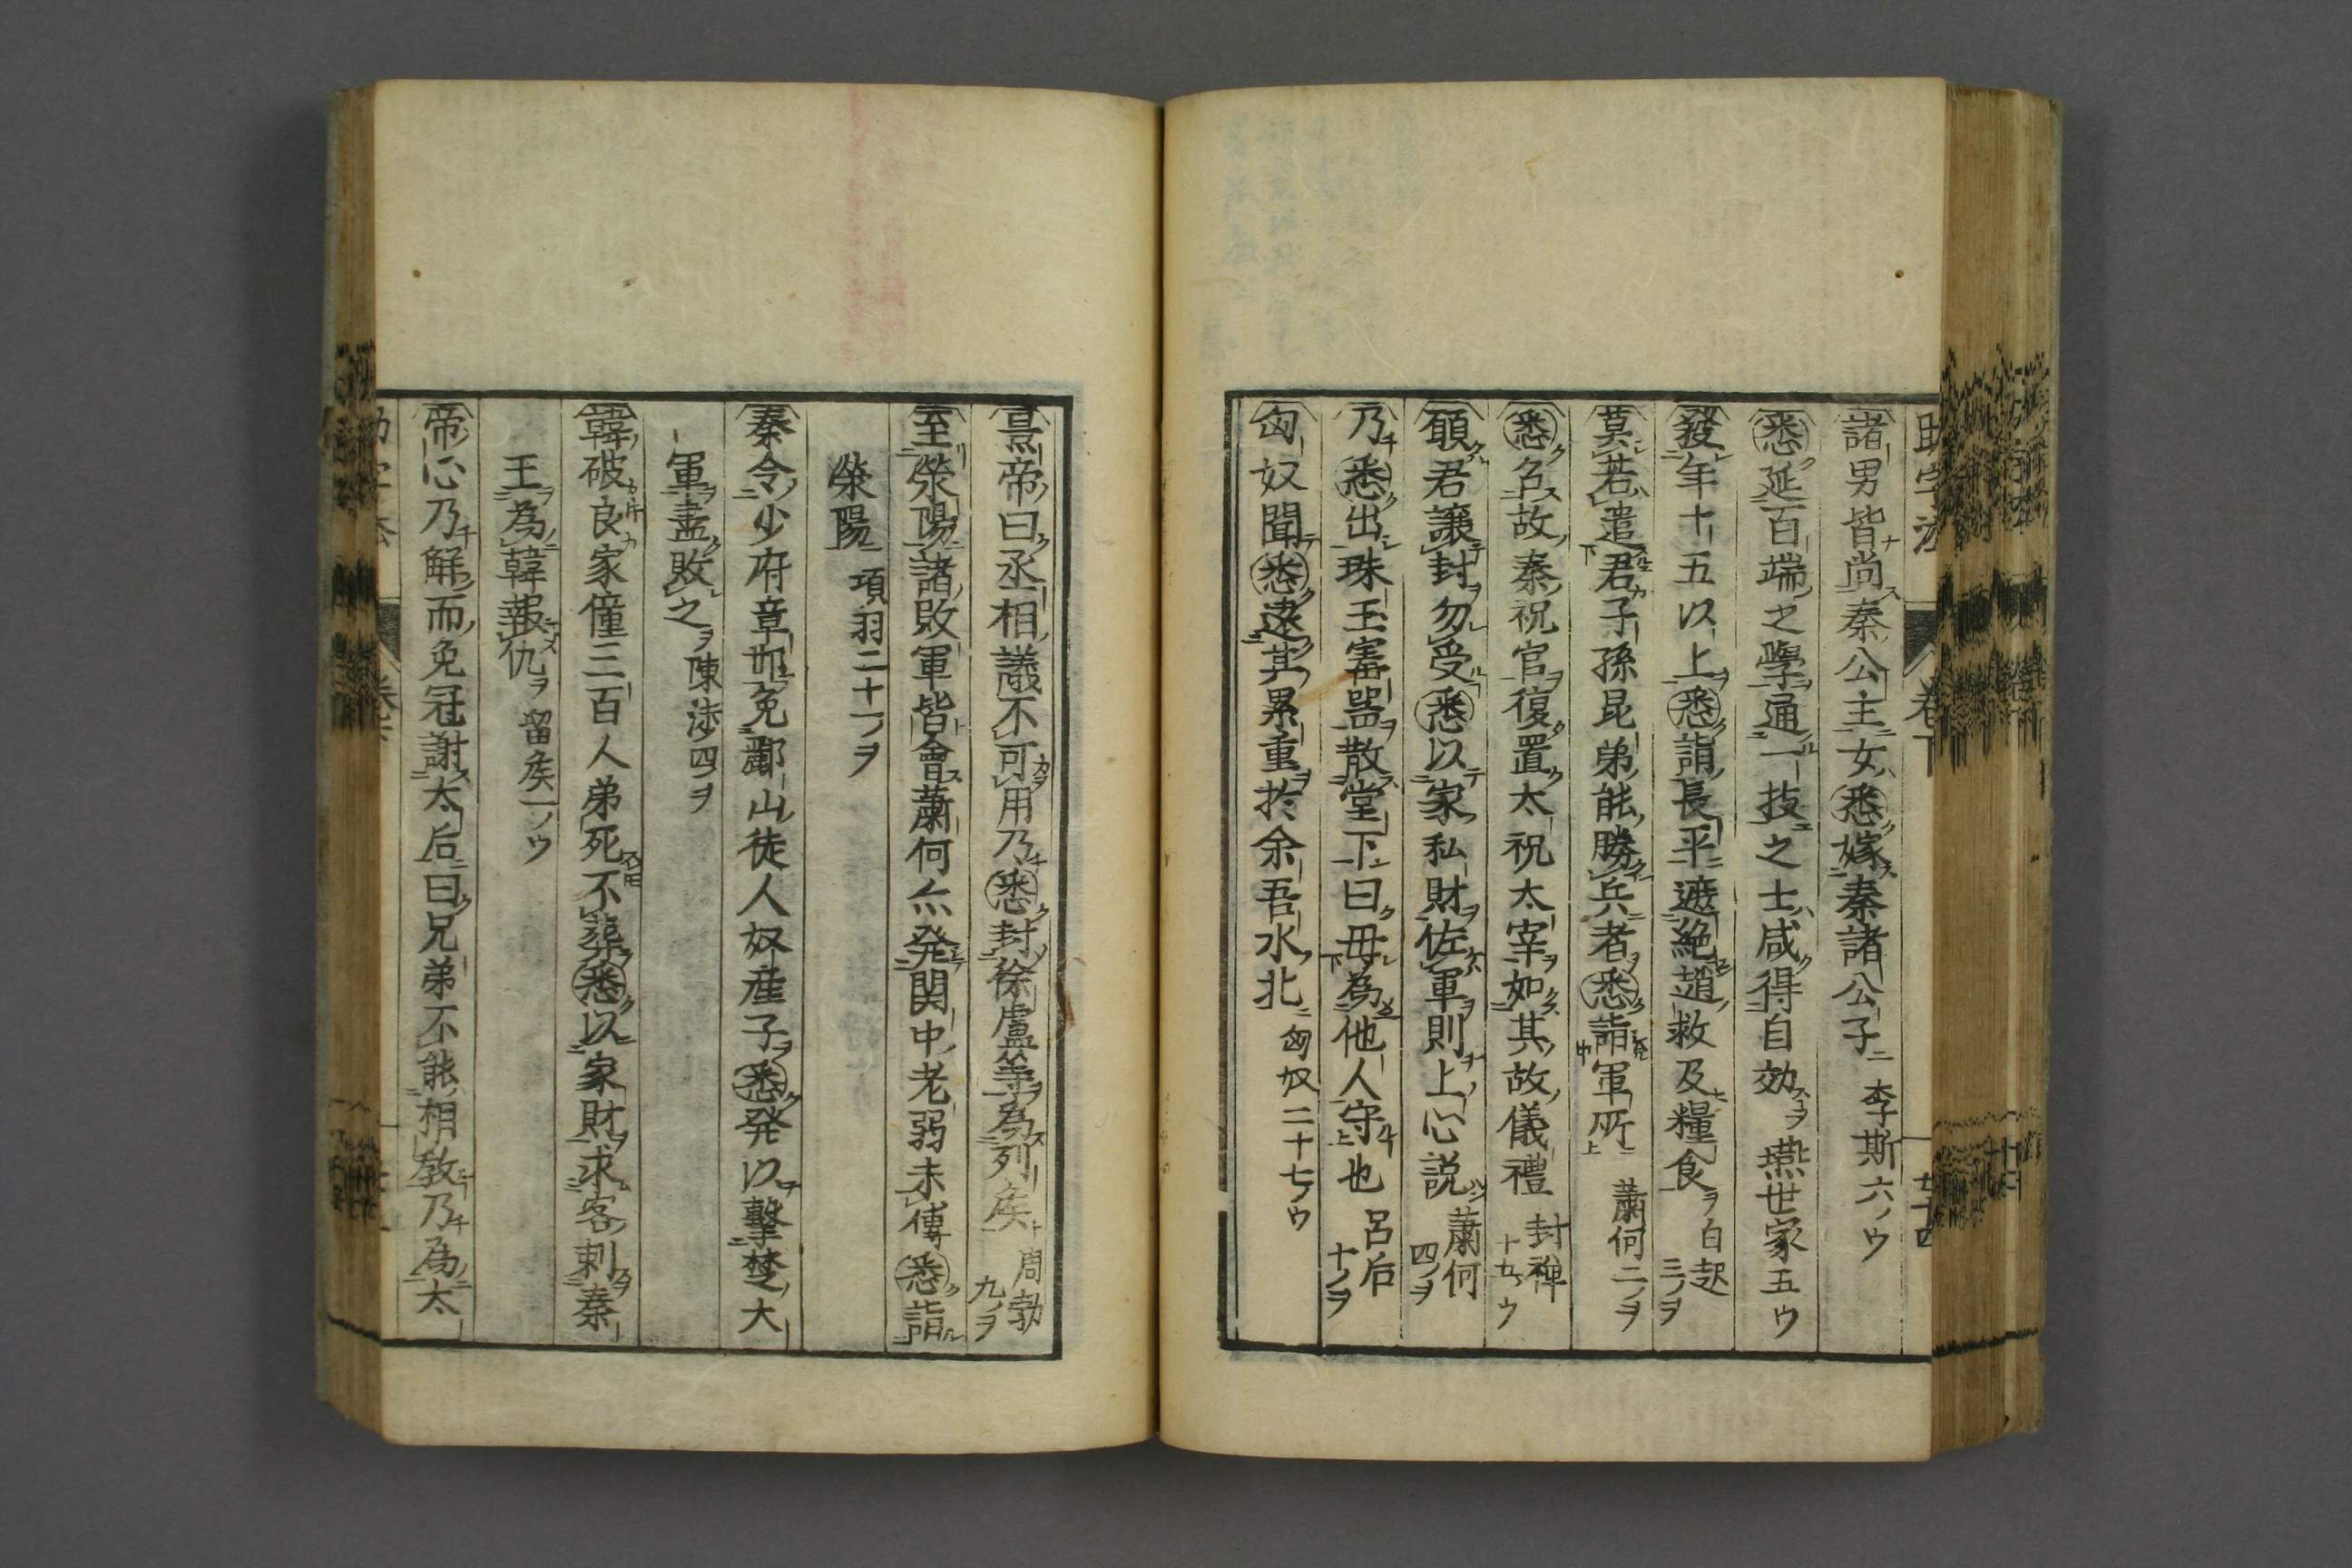 助字法 卷下 七十四
諸男皆尚秦公主女悉嫁秦諸公子 李斯六ノウ
悉延百端之學通一技之士咸得自効 燕世家五ウ
發年十五以上悉詣長平遮絶趙救及糧食 白起三ノヲ
莫若遣君子孫昆弟能勝兵者悉詣軍所 蕭何二ノヲ
悉名故秦祝官復置太祝太宰如其故儀禮 封禅十五ウ
願君讓封勿受悉以家私財佐軍則上心説 蕭何四ノヲ
乃悉出珠玉寳器散堂下曰毋為他人守也 呂后十ノヲ
匈奴聞悉遠其累重於余吾水北 匈奴二十七ノウ
景帝曰丞相議不可用乃悉封徐盧等為列矦 周勃九ノヲ
至滎陽諸敗軍皆會蕭何亦発関中老弱未傳悉詣
滎陽 項羽二十一ノヲ
秦令少府章邯免酈山徒人奴産子悉発以擊楚大
軍盡敗之 陳渉四ヲ
韓破良家僮三百人弟死不葬悉以家財求客刺秦
王為韓報仇 留矦一ノウ
帝心乃解而免冠謝太后曰兄弟不能相教乃為太